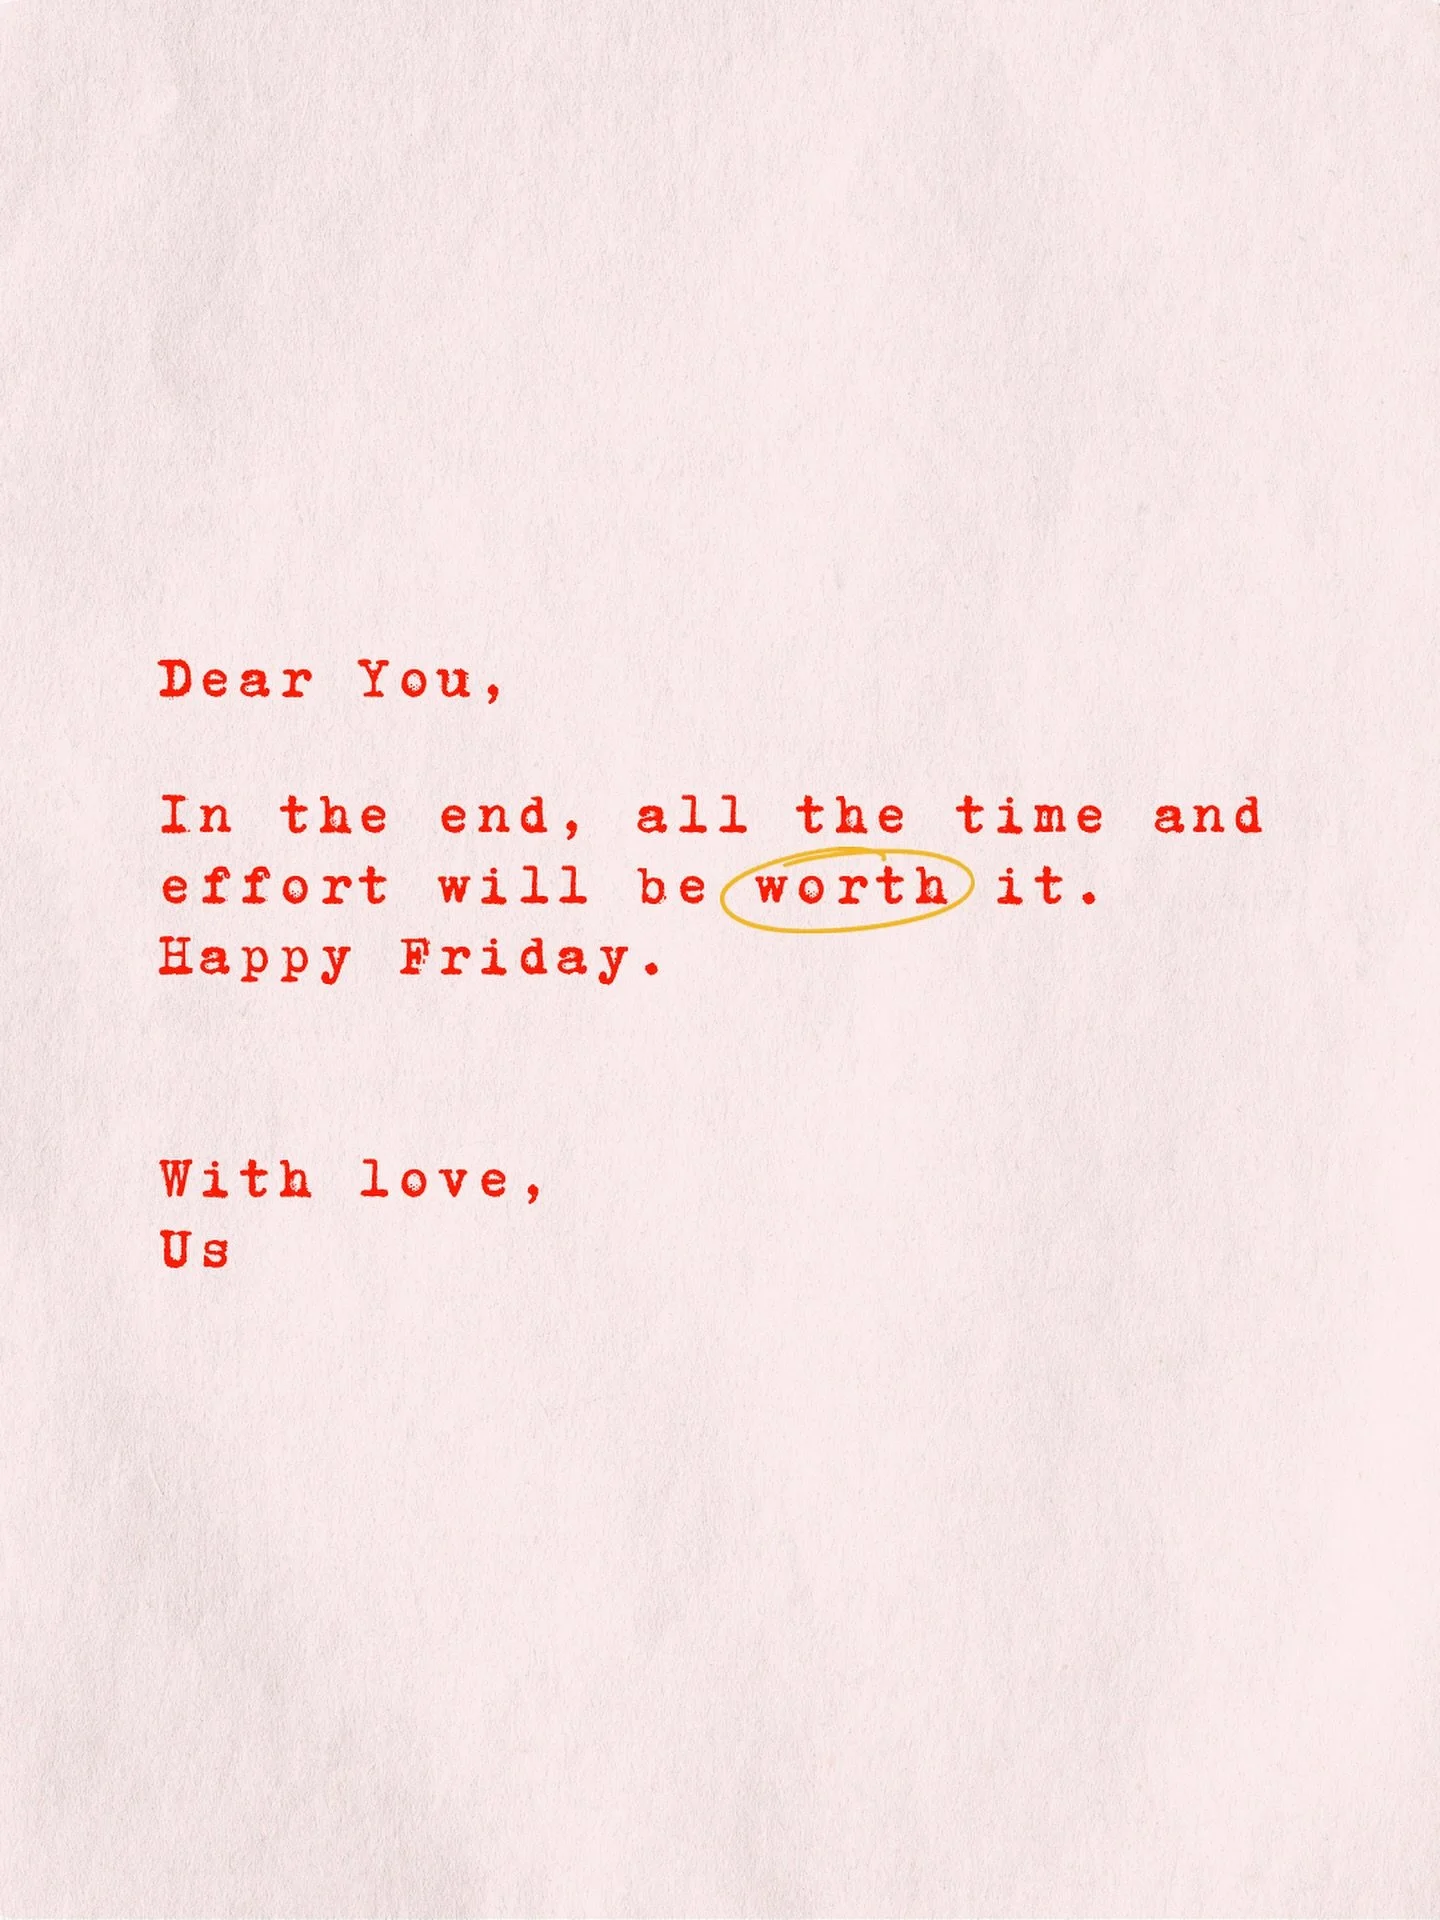 Dear You,
In the end, all the time and
effort will be worth it.
Happy Friday.
With love,
Us